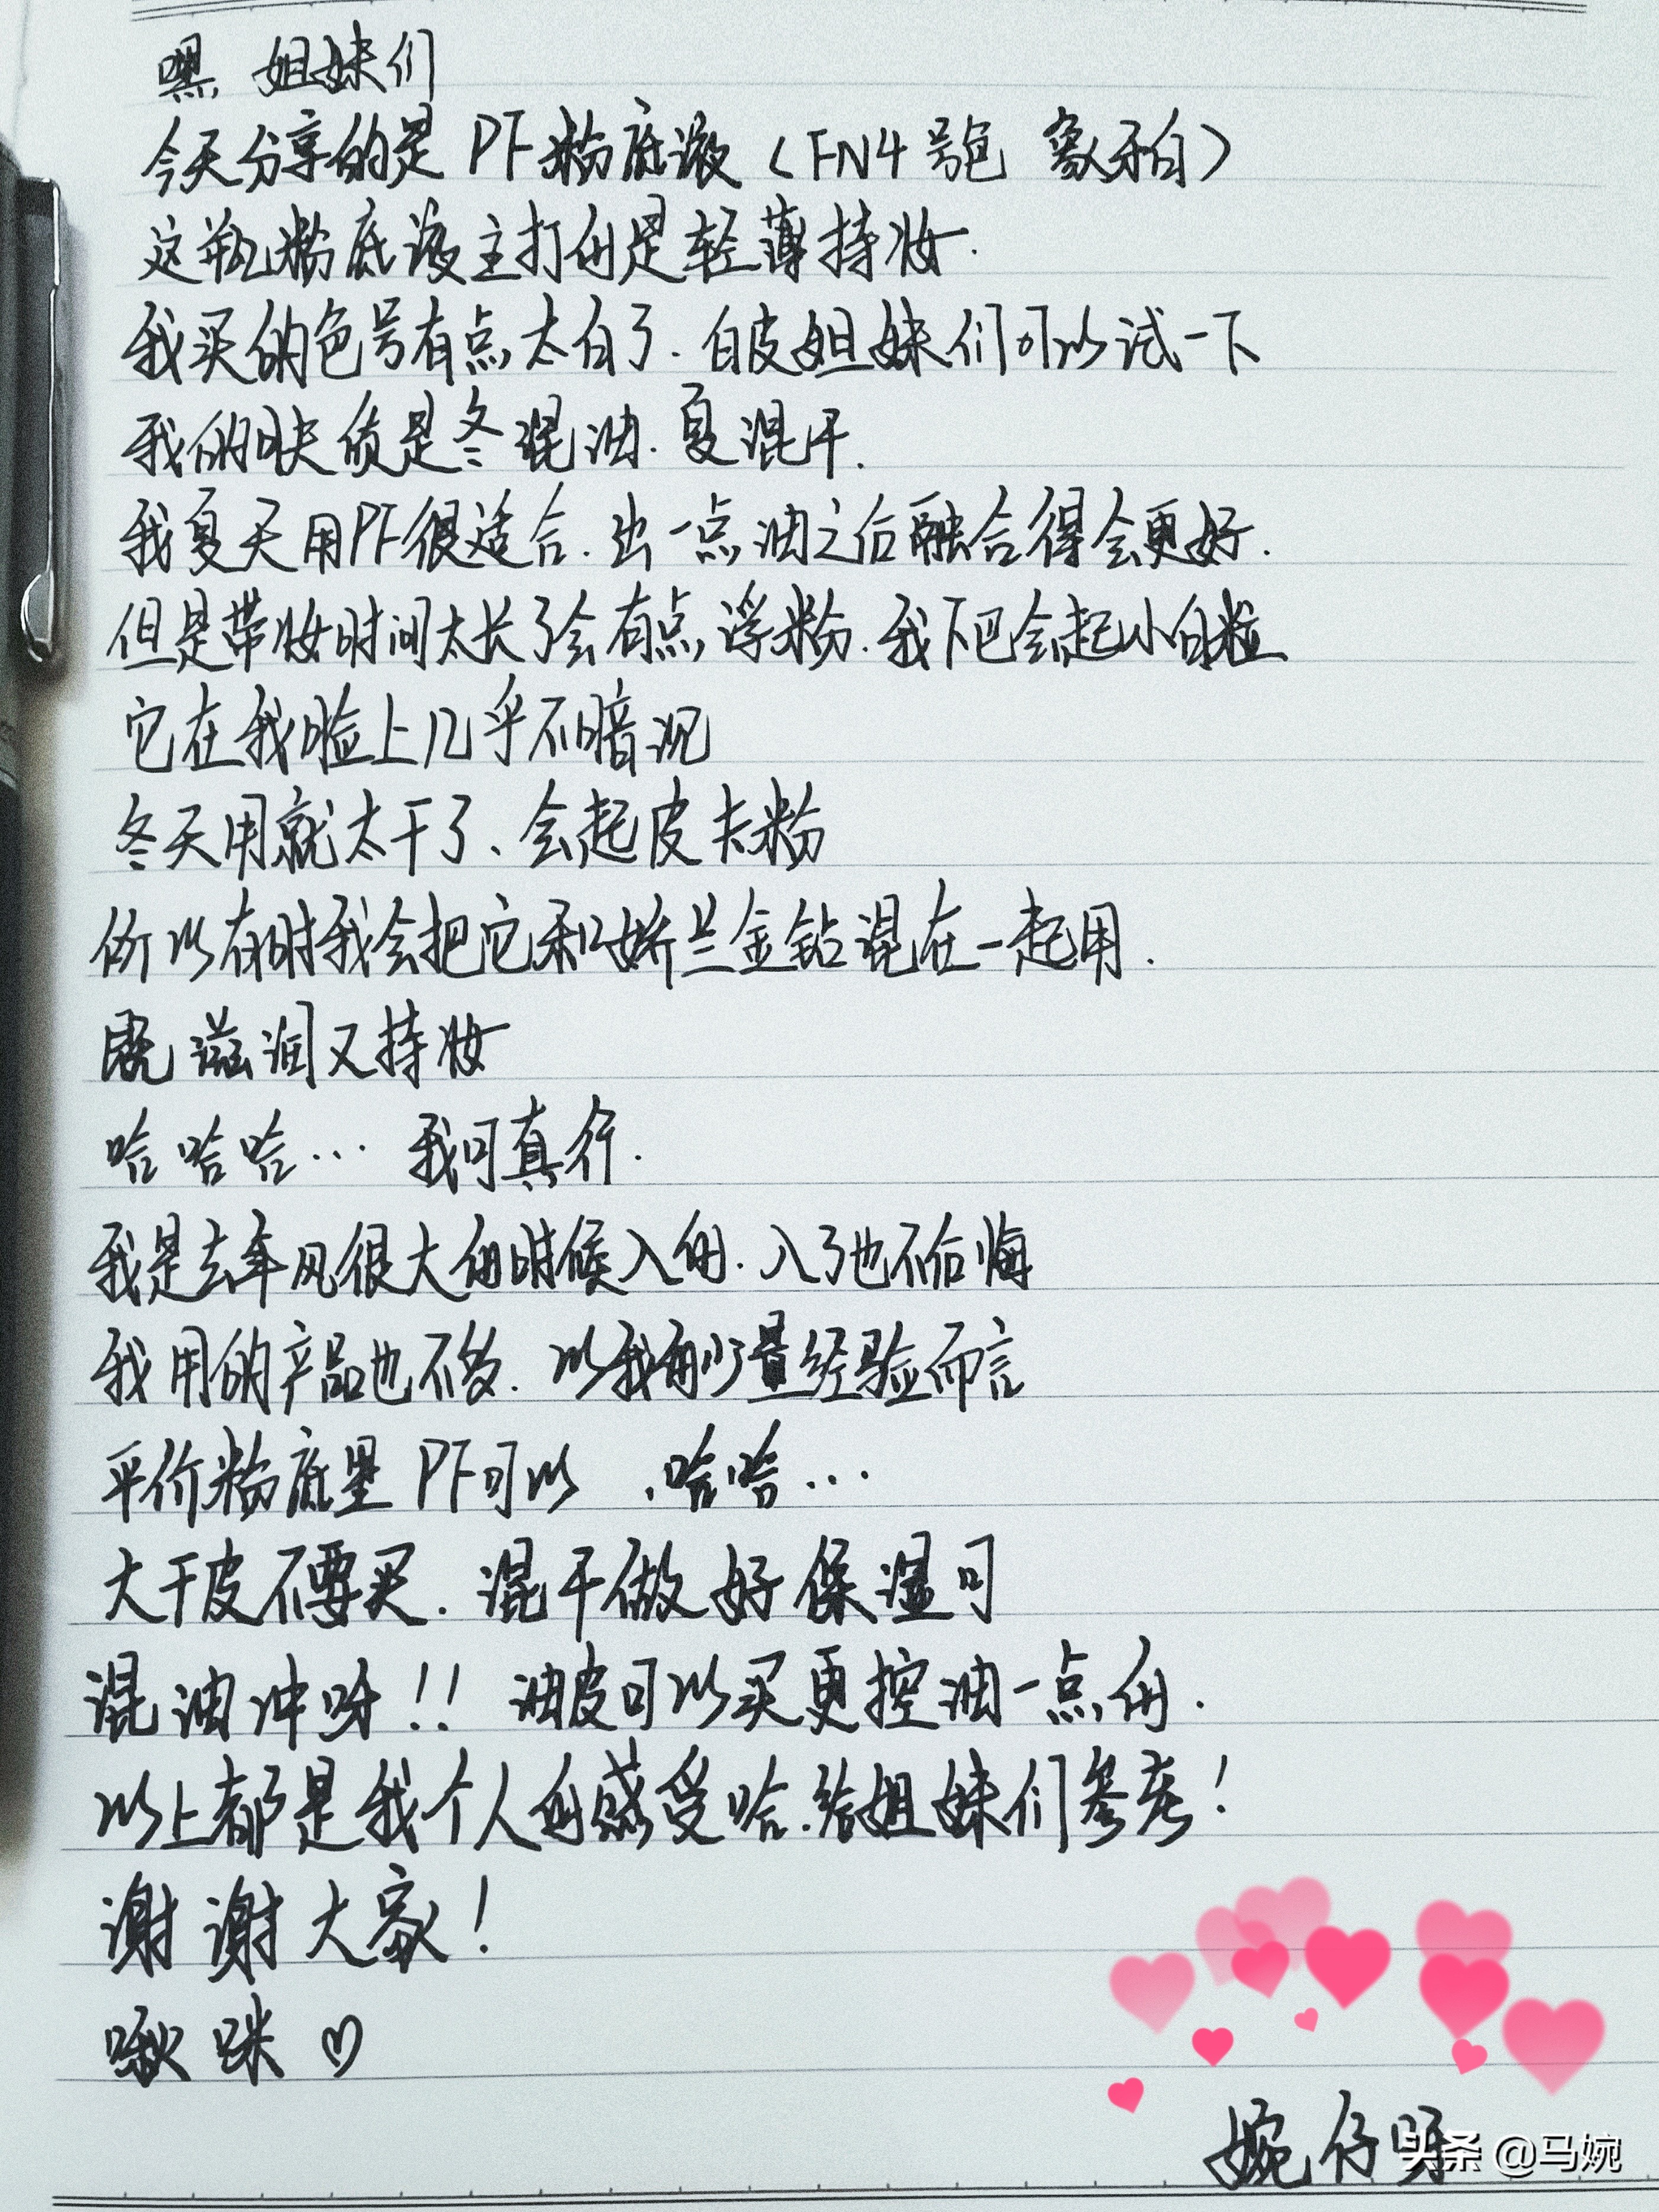 嘿 姐妹们
今天分享的是 PF粉底液（FN4号色 象牙白）
这瓶粉底液主打的是轻薄持妆.
我买的色号有点太白了.白皮姐妹们可以试一下
我的肤质是冬混油.夏混干.
我夏天用PF很适合.出一点油之后融合得会更好.
但是带妆时间太长了会有点浮粉.我下巴会起小白粒
它在我脸上几乎不暗沉
冬天用就太干了、会起皮卡粉
所以有时我会把它和娇兰金钻混在一起用.
既滋润又持妆
哈哈哈… 我可真行.
我是去年风很大的时候入的.入了也不后悔
我用的产品也不多.以我的少量经验而言
平价粉底里 PF可以 .哈哈…
大干皮不要买.混干做好保湿可
混油冲呀!! 油皮可以买更控油一点的.
以上都是我个人的感受哈.给姐妹们参考!
谢谢大家!
啾咪♡
婉仔呀
头条 @马婉